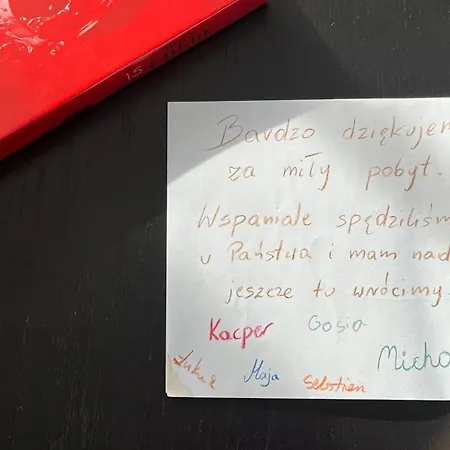 Bardzo dziękujem
za miły pobyt.
Wspaniale spędziliśm
u Państwa i mam nad
jeszcze tu wrócimy.
Kacper Gosia
Micha
Maja Sebstien